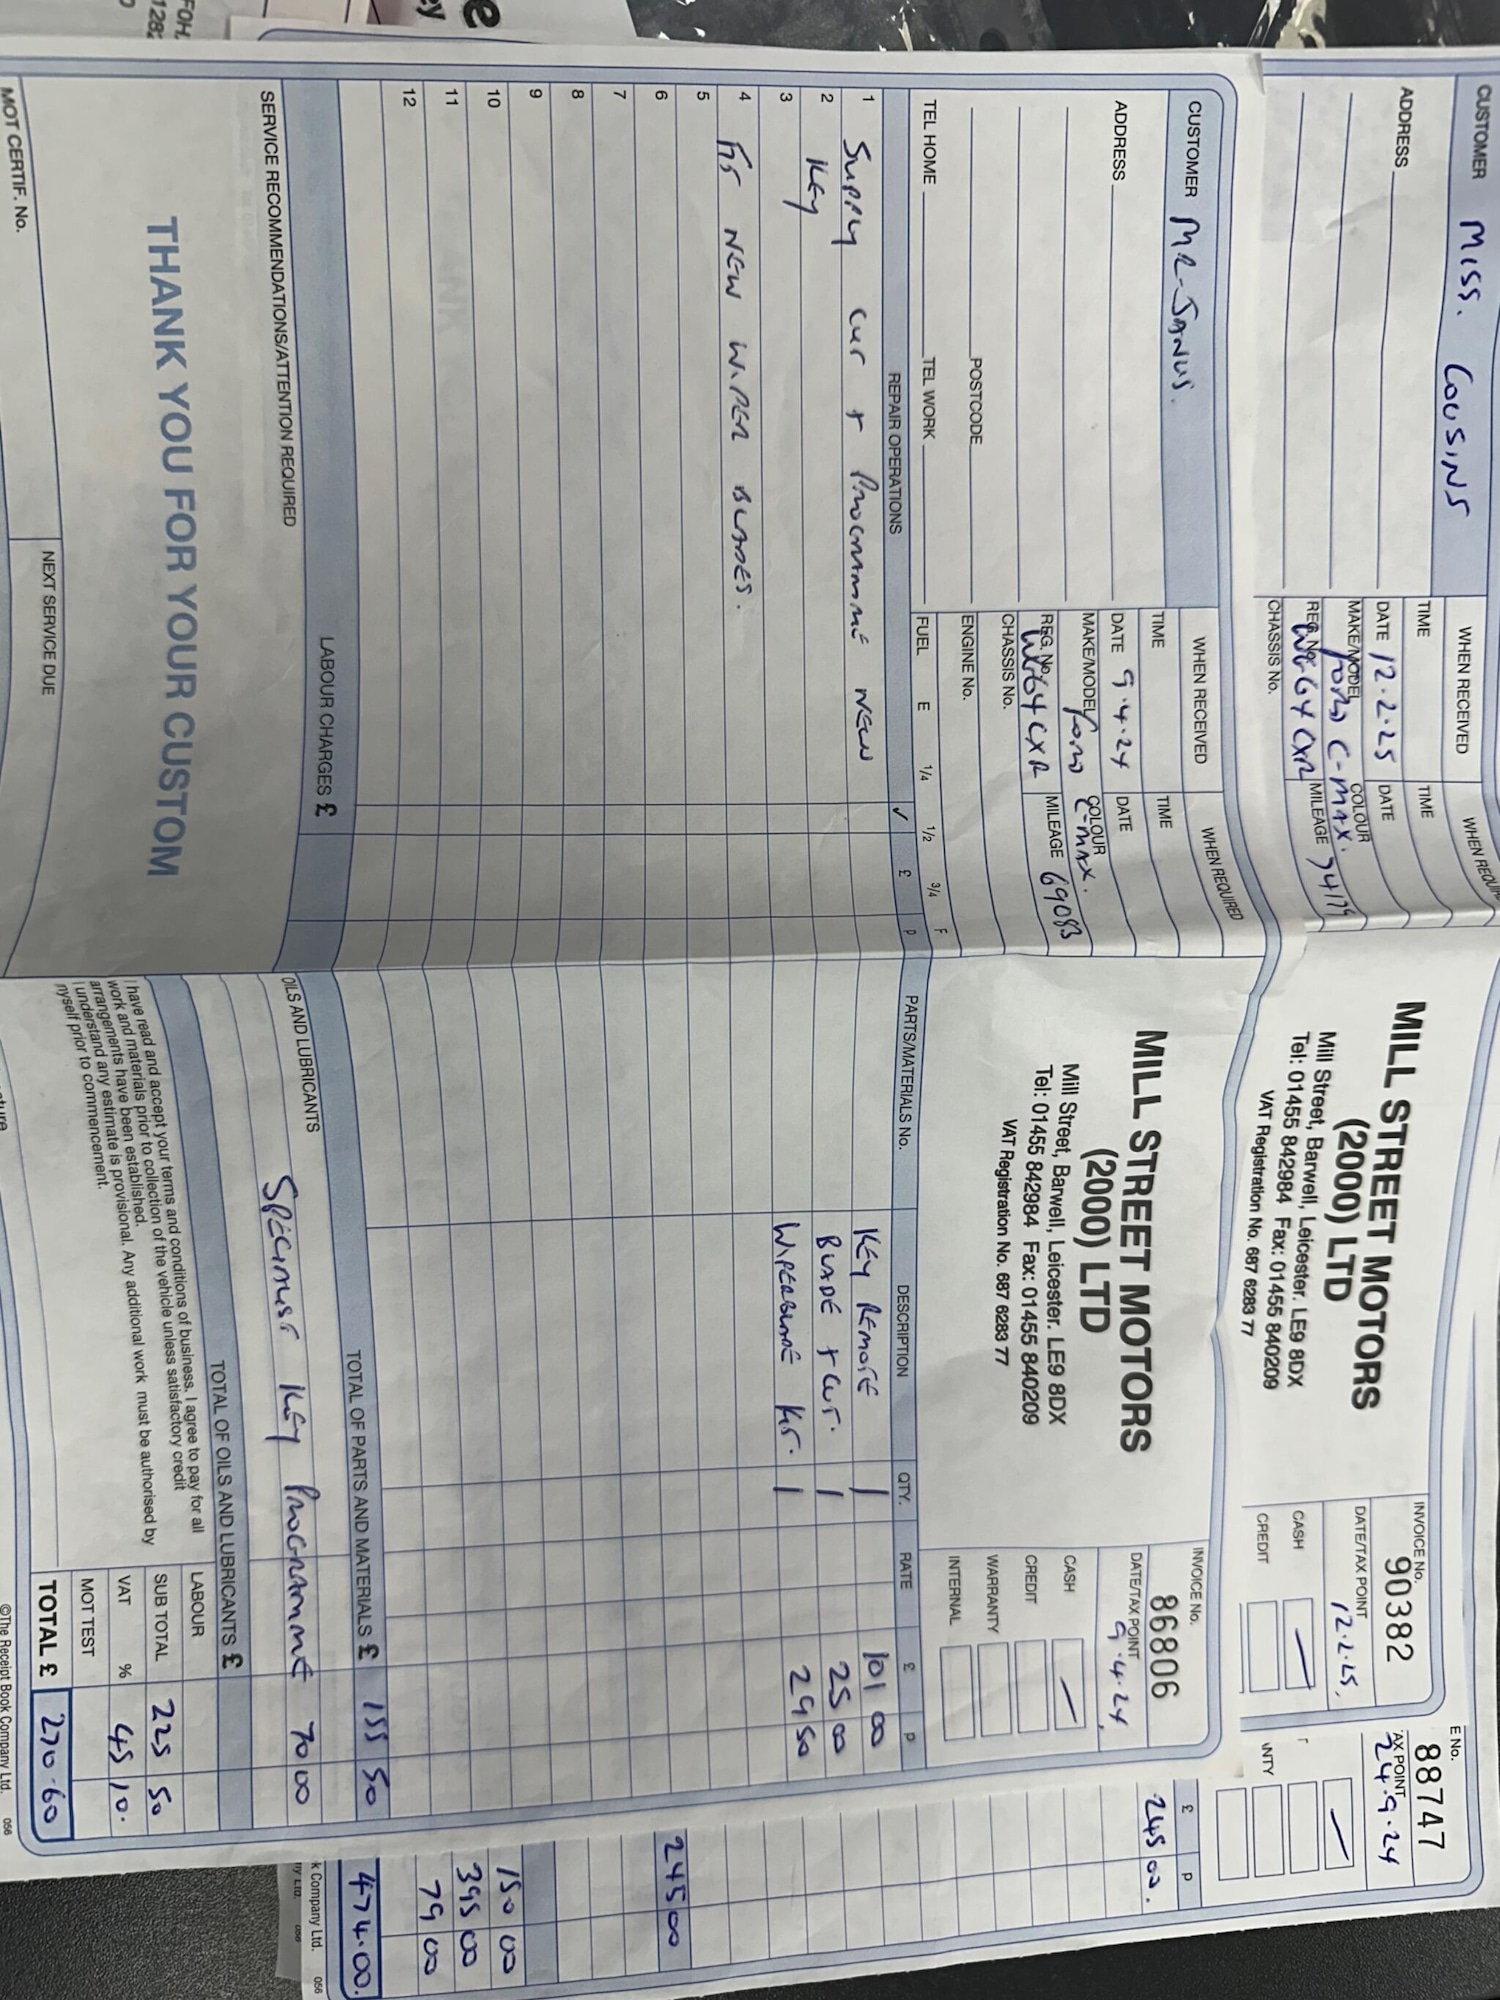 CUSTOMER MISS. COUSINS
ADDRESS
WHEN RECEIVED
TIME TIME
DATE 12.2.25 DATE
MAKE/MODEL FORD C-MAX. COLOUR
REG. No. CXR MILEAGE
CHASSIS No.
MILL STREET MOTORS
(2000) LTD
Mill Street, Barwell, Leicester. LE9 8DX
Tel: 01455 842984 Fax: 01455 840209
VAT Registration No. 687 6283 77
INVOICE No.
90382
DATE/TAX POINT
12.2.25.
CASH
CREDIT
E No.
88747
AX POINT
24.9.24
NTY
£ p
245 00.
245 00
150 00
395 00
79 00
474.00.
k Company Ltd. 056
CUSTOMER MR. JANUS.
ADDRESS
POSTCODE
TEL HOME TEL WORK
WHEN RECEIVED WHEN REQUIRED
TIME TIME
DATE 9.4.24 DATE
MAKE/MODEL FORD C-MAX. COLOUR
REG. No. CXR MILEAGE 69083
CHASSIS No.
ENGINE No.
FUEL E 1/4 1/2 3/4 F
MILL STREET MOTORS
(2000) LTD
Mill Street, Barwell, Leicester. LE9 8DX
Tel: 01455 842984 Fax: 01455 840209
VAT Registration No. 687 6283 77
INVOICE No.
86806
DATE/TAX POINT
9.4.24.
CASH
CREDIT
WARRANTY
INTERNAL
REPAIR OPERATIONS ✓ £ p
1 SUPPLY CUT + PROGRAMME NEW
2 KEY
3
4 FIT NEW WIPER BLADES.
5
6
7
8
9
10
11
12
LABOUR CHARGES £
SERVICE RECOMMENDATIONS/ATTENTION REQUIRED
THANK YOU FOR YOUR CUSTOM
MOT CERTIF. No. NEXT SERVICE DUE
PARTS/MATERIALS No. DESCRIPTION QTY. RATE £ p
KEY REMOTE 1 101 00
BLADE + CUT. 1 25 00
WIPERBLADE KIT. 1 29 50
TOTAL OF PARTS AND MATERIALS £ 155 50
OILS AND LUBRICANTS
SPECIALIST KEY PROGRAMME 70 00
TOTAL OF OILS AND LUBRICANTS £
I have read and accept your terms and conditions of business. I agree to pay for all
work and materials prior to collection of the vehicle unless satisfactory credit
arrangements have been established.
I understand any estimate is provisional. Any additional work must be authorised by
myself prior to commencement.
LABOUR
SUB TOTAL 225 50
VAT % 45 10.
MOT TEST
TOTAL £ 270.60
©The Receipt Book Company Ltd. 056